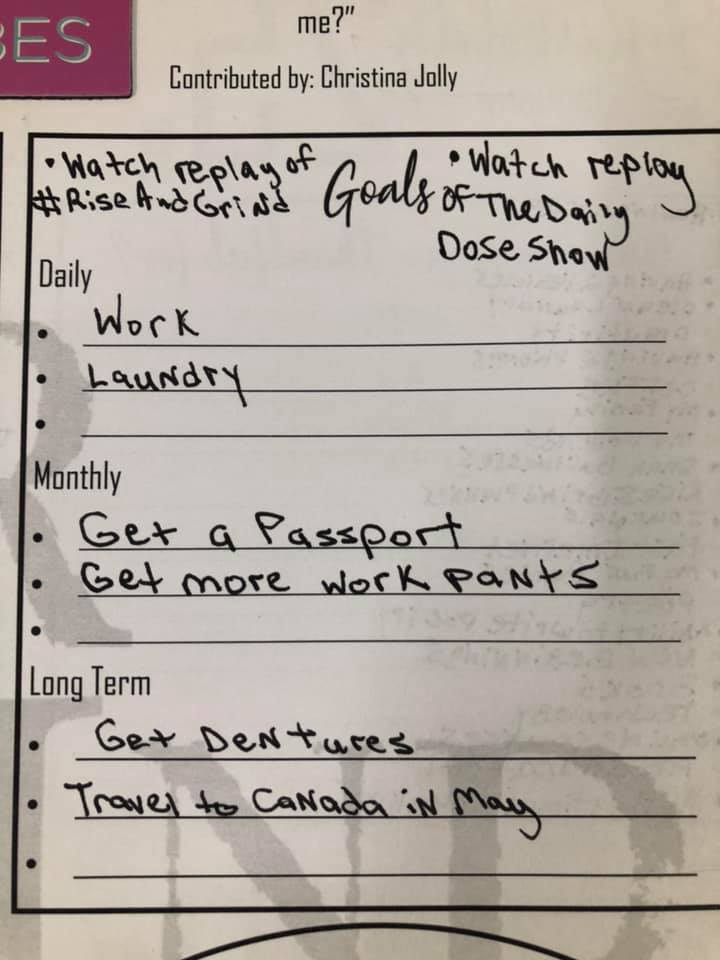 BES
me?"
Contributed by: Christina Jolly
• Watch replay of
#RiseAndGrind
Goals
• Watch replay
of The Daily
Dose Show
Daily
• Work
• Laundry
•
Monthly
• Get a Passport
• Get more work pants
•
Long Term
• Get Dentures
• Travel to Canada in May
•